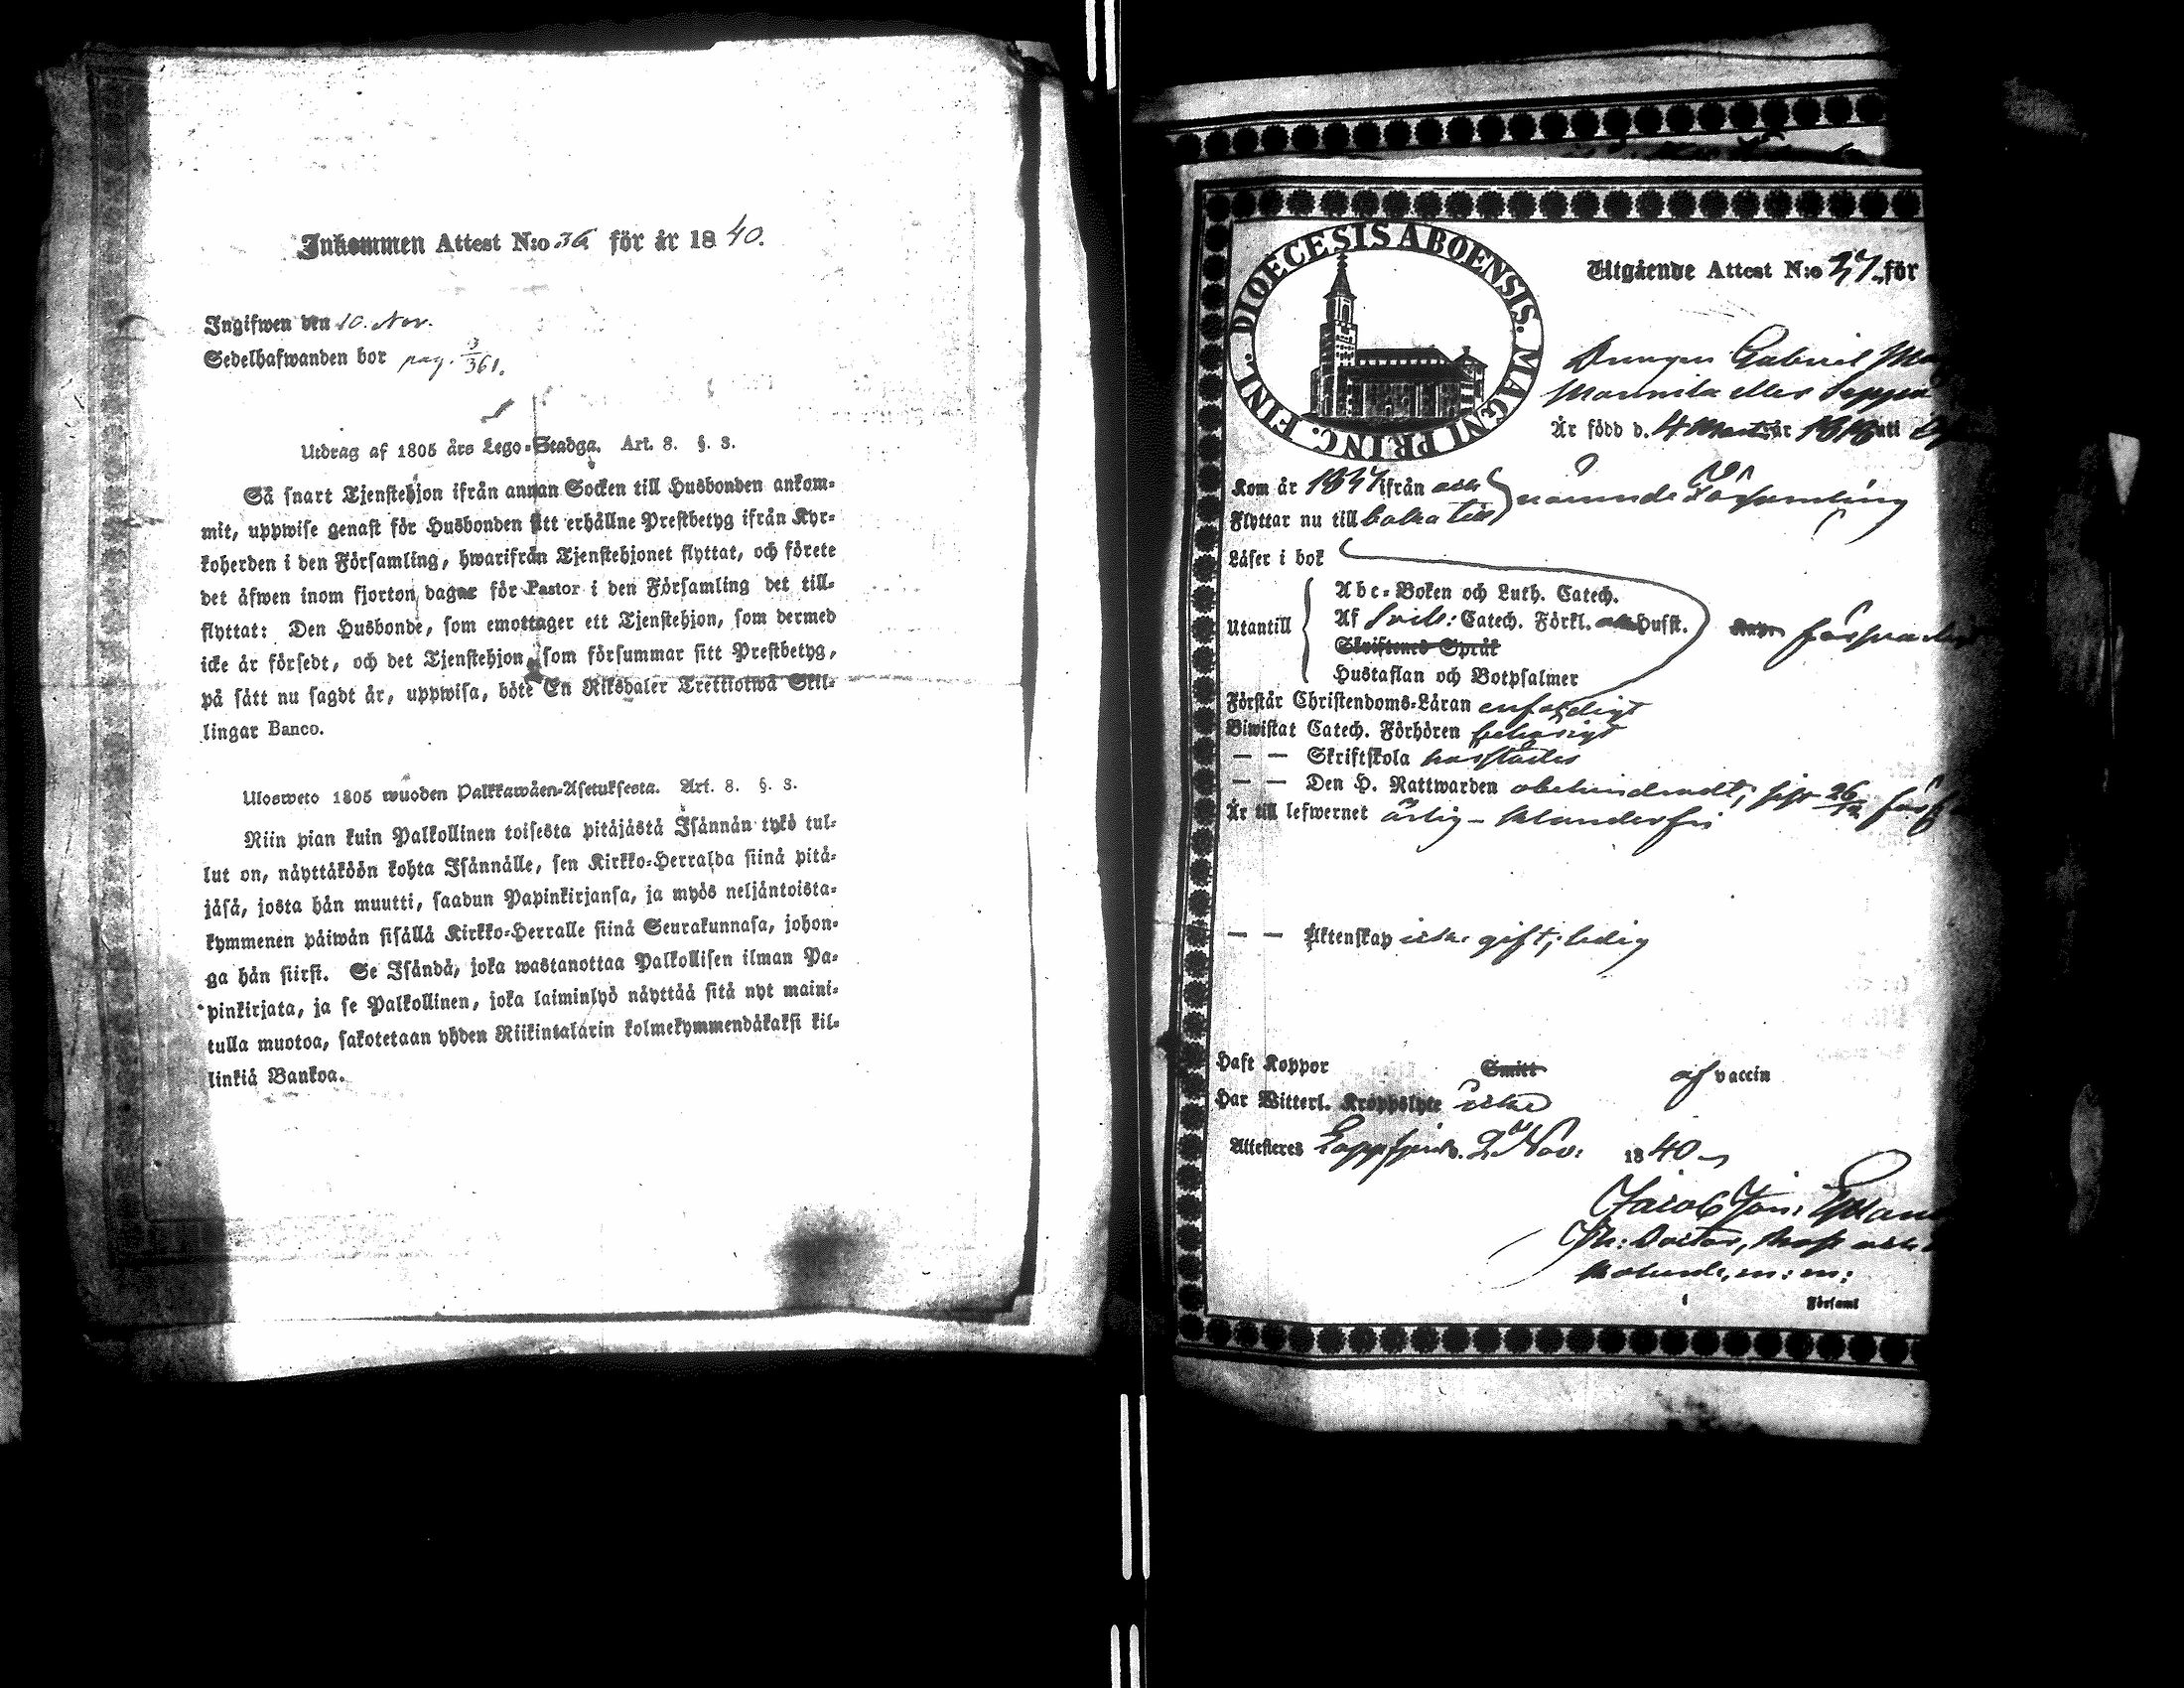 Inkommen Attest N:o 36 för år 1840.
Ingifwen den 10. Nov.
Sedelhafwanden bor pag. 3/361.
Utdrag af 1805 års Lego-Stadga. Art. 8. §. 3.
Så snart Tjenstehjon ifrån annan Socken till Husbonden ankom-
mit, uppwise genast för Husbonden sitt erhållne Prestbetyg ifrån Kyr-
koherden i den Församling, hwarifrån Tjenstehjonet flyttat, och förete
det äfwen inom fjorton dagar för Pastor i den Församling det till-
flyttat: Den Husbonde, som emottager ett Tjenstehjon, som dermed
icke är försedt, och det Tjenstehjon, som försummar sitt Prestbetyg,
på sätt nu sagdt är, uppwisa, böte En Riksdaler Trettiotwå Skil-
lingar Banco.
Ulosweto 1805 wuoden Palkkawäen-Asetuksesta. Art. 8. §. 3.
Niin pian kuin Palkollinen toisesta pitäjästä Isännän tykö tul-
lut on, näyttäköön kohta Isännälle, sen Kirkko-Herralda siinä pitä-
jäsä, josta hän muutti, saadun Papinkirjansa, ja myös neljäntoista-
kymmenen päiwän sisällä Kirkko-Herralle siinä Seurakunnasa, johon-
ga hän siirsi. Se Isändä, joka wastanottaa Palkollisen ilman Pa-
pinkirjata, ja se Palkollinen, joka laiminlyö näyttää sitä nyt maini-
tulla muotoa, sakotetaan yhden Riikintalarin kolmekymmendäkaksi kil-
linkiä Bankoa.
DIOECESIS ABOENSIS. MAGNI PRINC. FINL.
Utgående Attest N:o 37. för
Drengen Gabriel
eller
Är född d. 4 Martii år 1818 uti
Kom år 1837 ifrån och
Flyttar nu till baka till nämnde Församling
Läser i bok
Utantill
Abc-Boken och Luth. Catech.
Af Svib: Catech. Förkl. Husst.
Skriftenes Språk
Hustaflan och Botpsalmer
Förstår Christendoms-Läran enfaldigt
Biwistat Catech. Förhören behörigt
— — Skriftskola
— — Den H. Nattwarden obehindradt, sist 26
Är till lefwernet ärlig - klanderfri
— — Äktenskap icke gift, ledig
Haft Koppor Smitt af vaccin
Har Witterl. Kroppslyte icke
Attesteres 2 Nov. 1840
Jacob Joh:
Ph: Doctor, Prost och
m: m:
i Församl